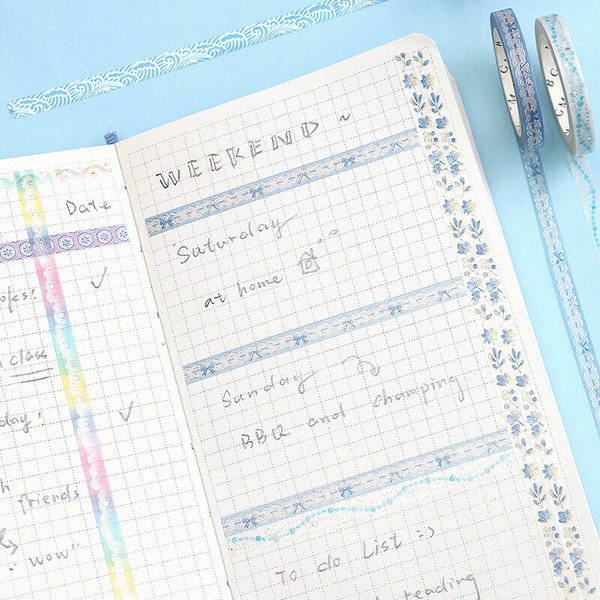 Date
class
day!
friends
wow"
WEEKEND ~
Saturday
at home
Sunday
BBQ and champing
To do List :)
reading